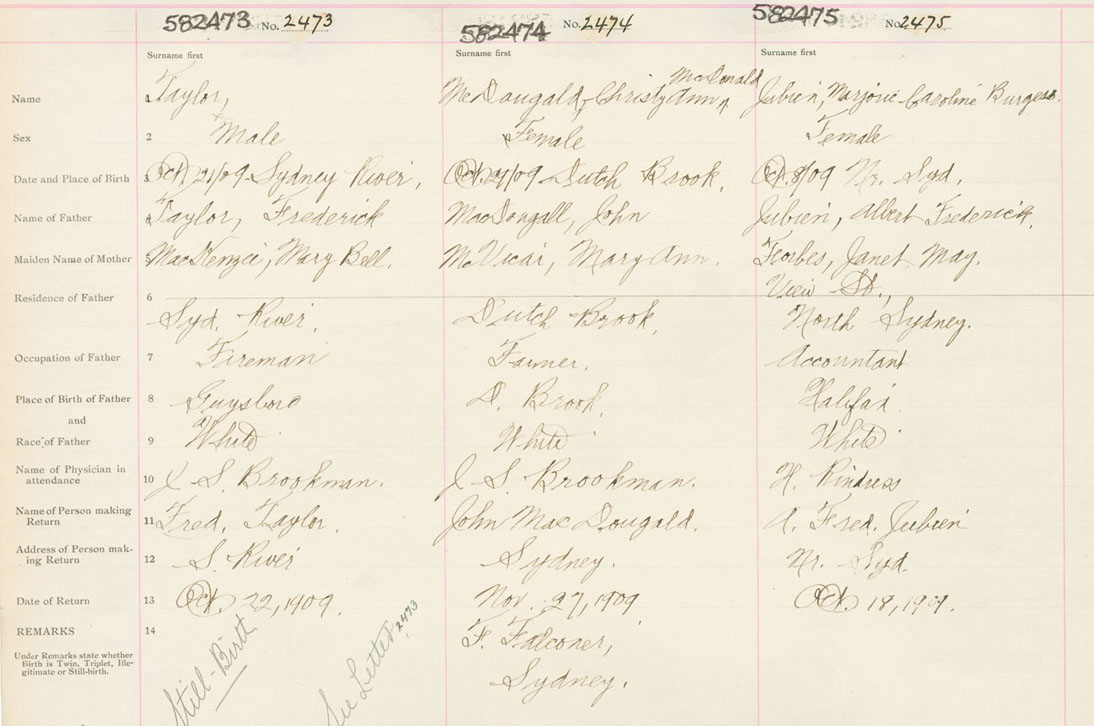 582473 No. 2473 582474 No. 2474 582475 No. 2475
Surname first Surname first Surname first
McDonald
Name 1 Taylor, McDougald, Christy Ann ^ Jubien, Marjorie Caroline Burgess.
Sex 2 Male Female Female
Date and Place of Birth 3 Oct 21/09 Sydney River, Oct. 24/09 Dutch Brook, Oct. 8/09 Nr. Syd.
Name of Father 4 Taylor, Frederick MacDougall, John Jubien, Albert Frederick,
Maiden Name of Mother 5 MacKenzie, Mary Bell. McVicar, Mary Ann. Forbes, Janet May.
View St.,
Residence of Father 6 Syd. River, Dutch Brook, North Sydney.
Occupation of Father 7 Fireman Farmer. Accountant
Place of Birth of Father 8 Guysboro D. Brook, Halifax
and
Race of Father 9 White White White
Name of Physician in
attendance 10 J. S. Brookman. J. S. Brookman. H. Rindress
Name of Person making
Return 11 Fred. Taylor. John MacDougald. A. Fred. Jubien
Address of Person mak-
ing Return 12 S. River Sydney. Nr. Syd.
Date of Return 13 Oct. 22, 1909. Nov. 27, 1909 Oct. 18, 1909.
REMARKS 14 F. Falconer,
Under Remarks state whether
Birth is Twin, Triplet, Ille-
gitimate or Still-birth.
Sydney.
Still-Birth
See Letter 2473